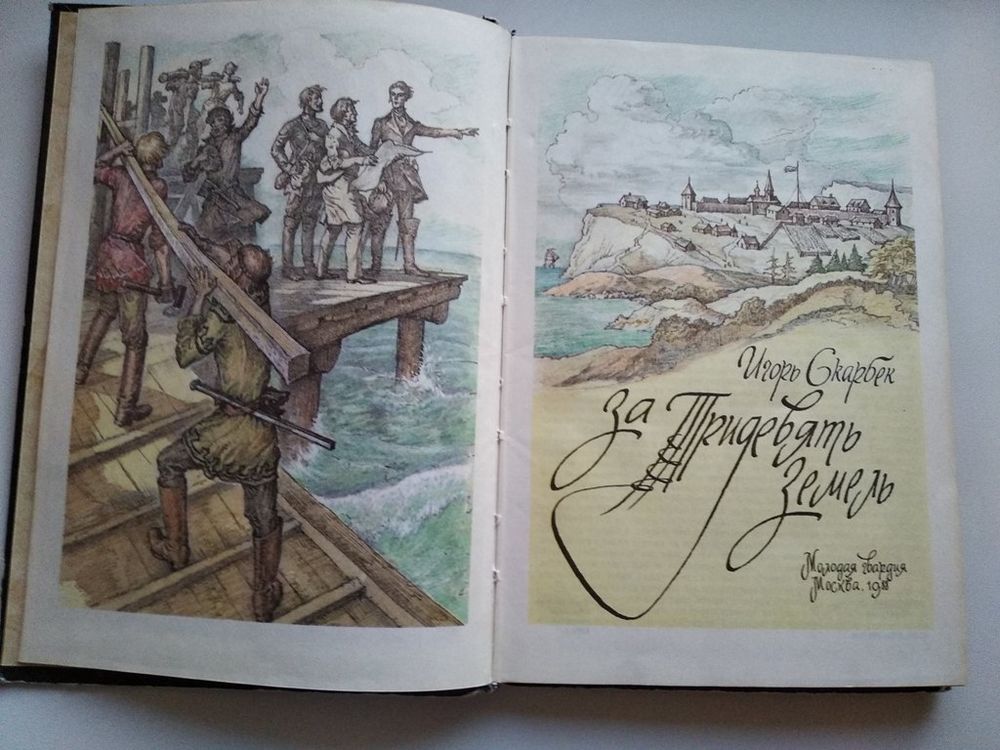 Игорь Скарбек
За Тридевять
Земель
Молодая гвардия
Москва. 1988